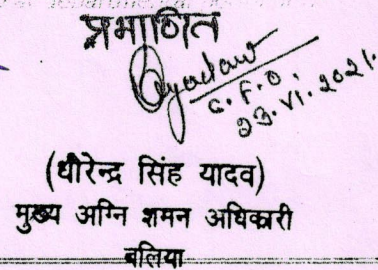 प्रमाणित
C. F. O.
23. VI. 2021.
(धीरेन्द्र सिंह यादव)
मुख्य अग्नि शमन अधिकारी
बलिया